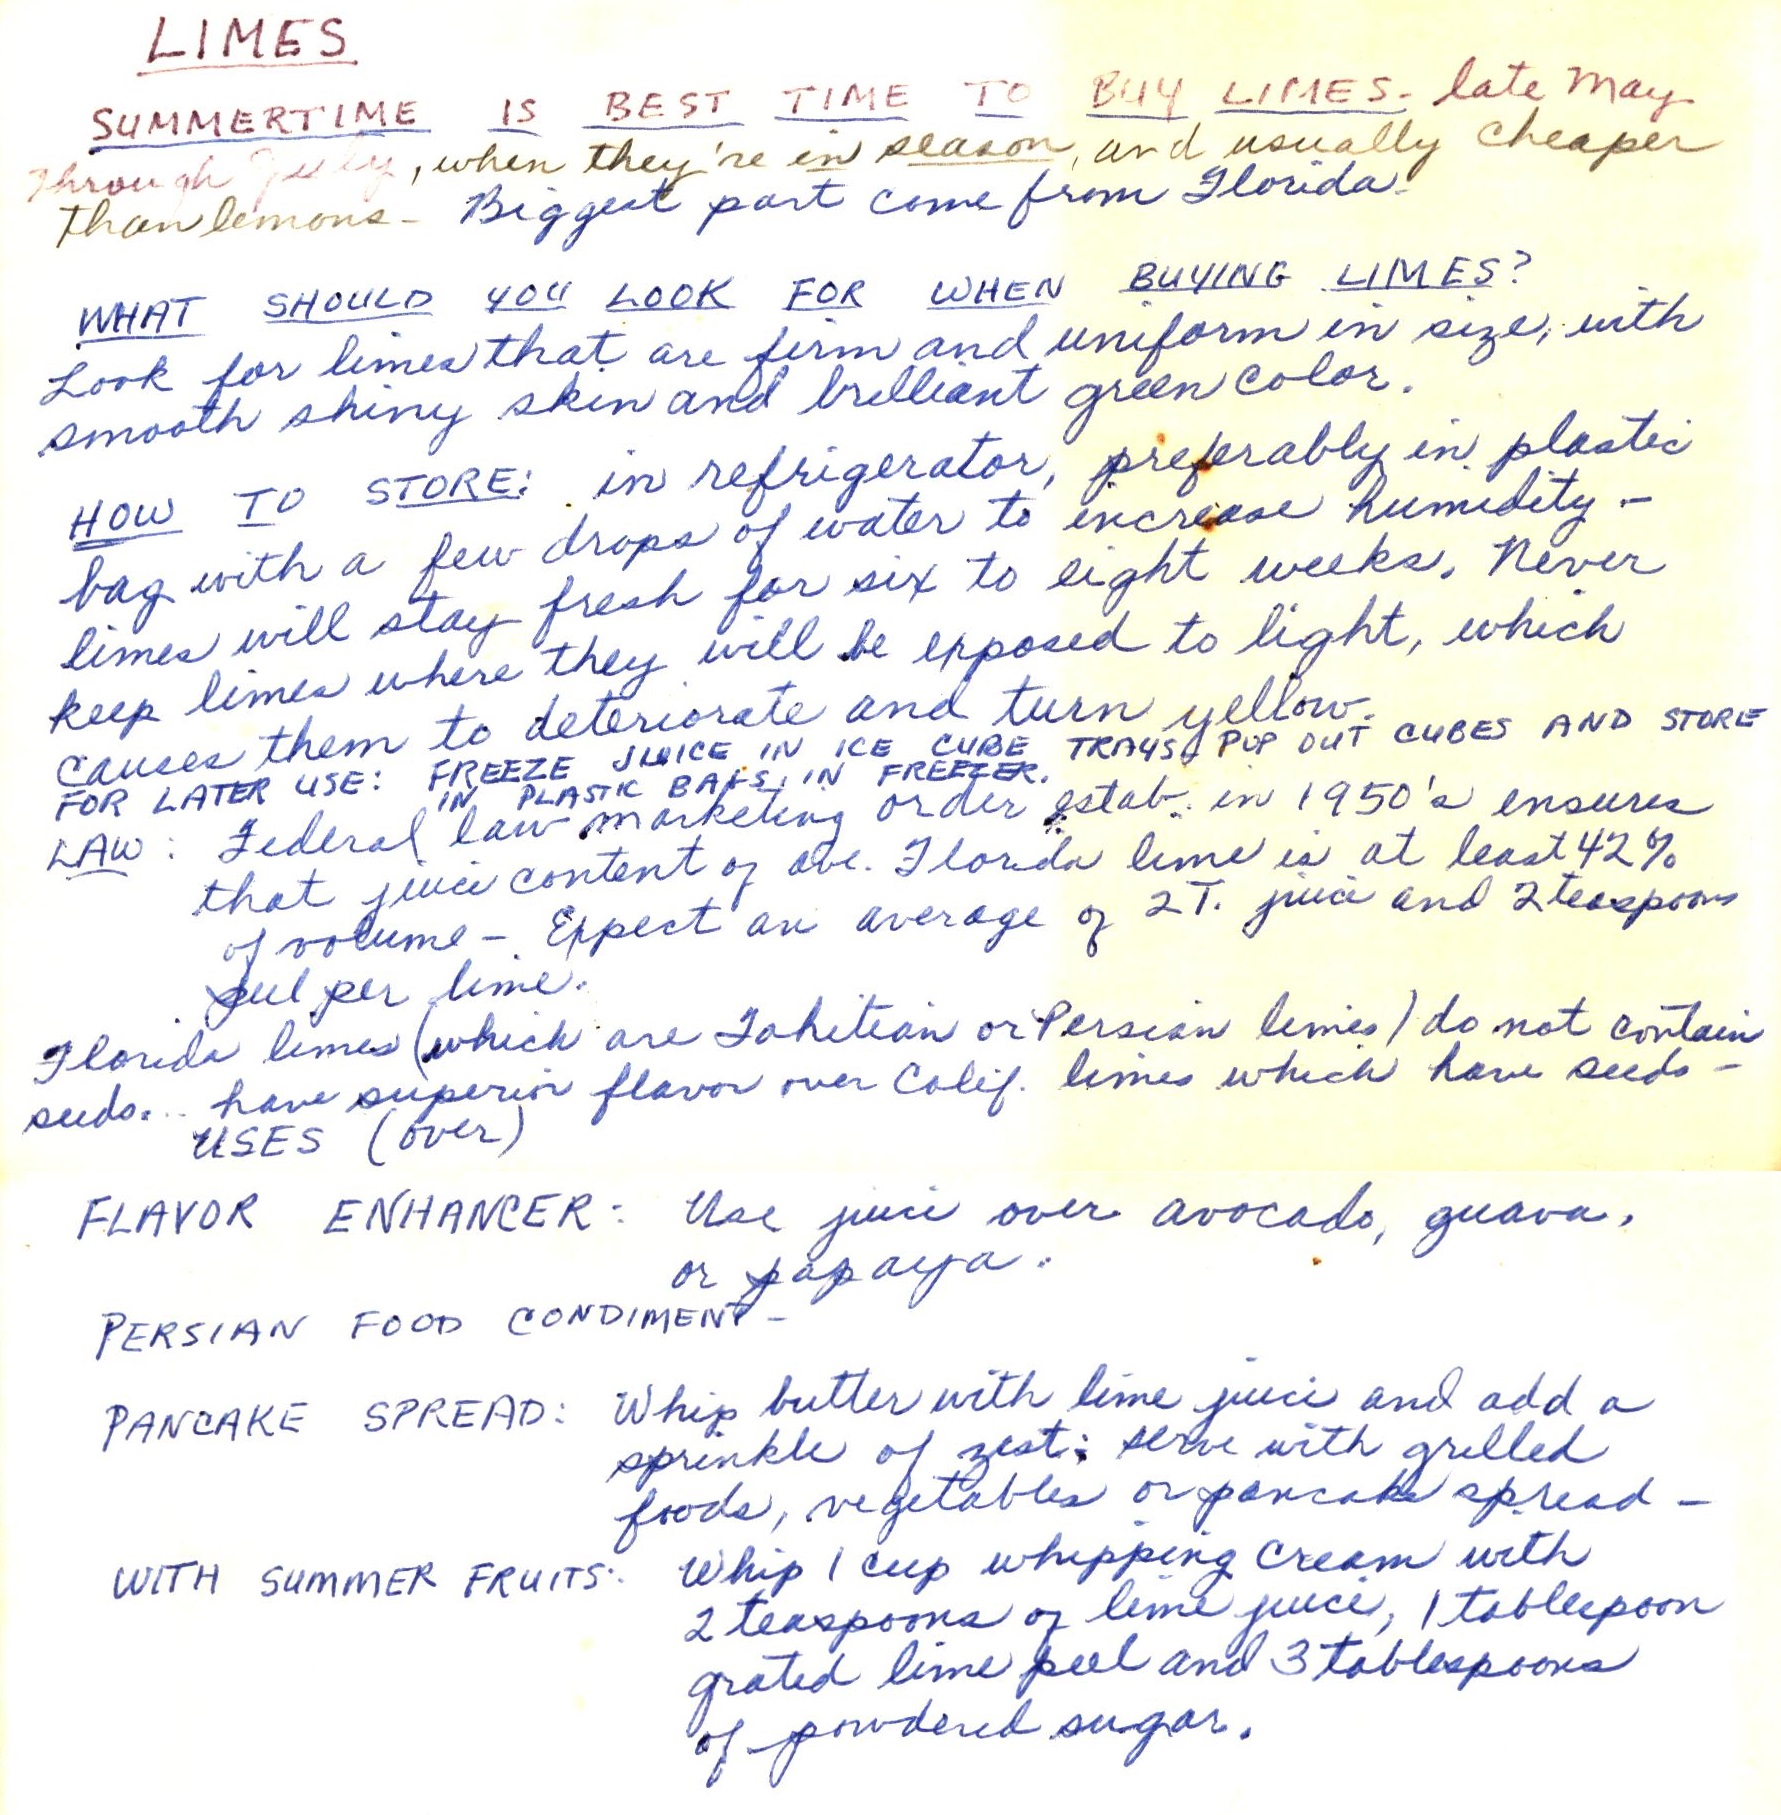 LIMES
SUMMERTIME IS BEST TIME TO BUY LIMES - late May
through July, when they're in season, and usually cheaper
than lemons - Biggest part come from Florida.
WHAT SHOULD YOU LOOK FOR WHEN BUYING LIMES?
Look for limes that are firm and uniform in size, with
smooth shiny skin and brilliant green color.
HOW TO STORE: in refrigerator, preferably in plastic
bag with a few drops of water to increase humidity -
limes will stay fresh for six to eight weeks. Never
keep limes where they will be exposed to light, which
causes them to deteriorate and turn yellow.
FOR LATER USE: FREEZE JUICE IN ICE CUBE TRAYS, POP OUT CUBES AND STORE
IN PLASTIC BAGS IN FREEZER.
LAW: Federal law marketing order estab. in 1950's ensures
that juice content of ave. Florida lime is at least 42%
of volume - Expect an average of 2 T. juice and 2 teaspoons
peel per lime.
Florida limes (which are Tahitian or Persian limes) do not contain
seeds... have superior flavor over Calif. limes which have seeds -
USES (over)
FLAVOR ENHANCER: Use juice over avocado, guava,
or papaya.
PERSIAN FOOD CONDIMENT -
PANCAKE SPREAD: Whip butter with lime juice and add a
sprinkle of zest; serve with grilled
foods, vegetables or pancake spread -
WITH SUMMER FRUITS: Whip 1 cup whipping cream with
2 teaspoons of lime juice, 1 tablespoon
grated lime peel and 3 tablespoons
of powdered sugar.